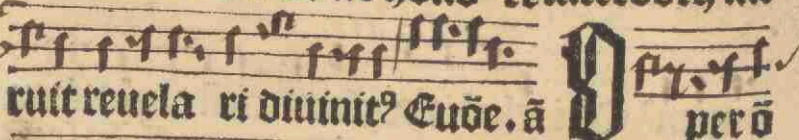 ruit reuela ri diuinitꝰ Euōe. ā O per ō